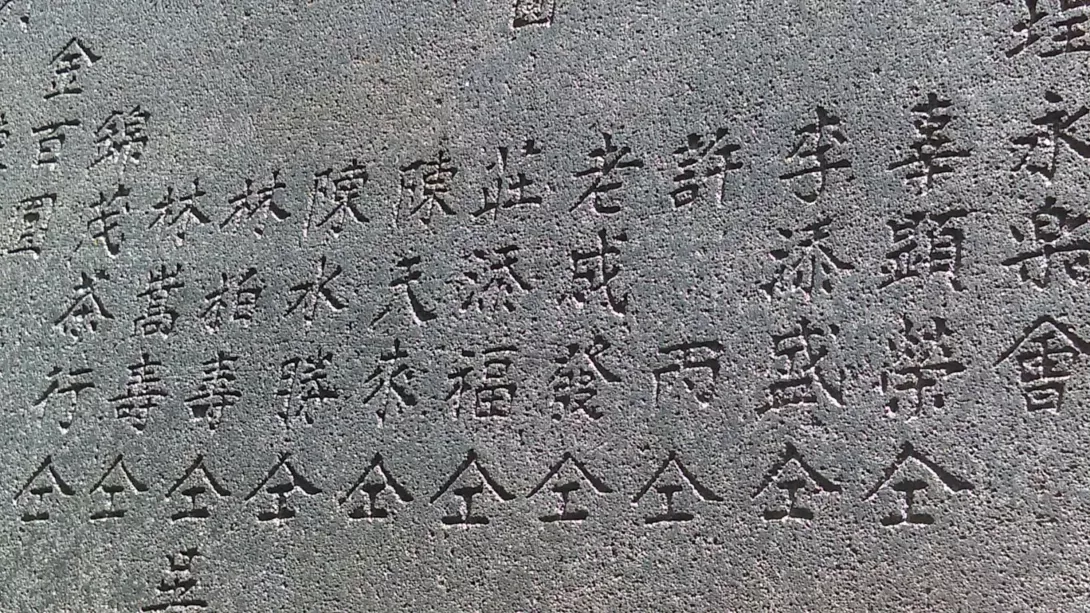 永樂會
辜顕榮仝
李添盛仝
許雨仝
老成發仝
莊添福仝
陳天来仝
陳水勝仝
林柏壽仝
林嵩壽仝
錦茂茶行仝
金百圓